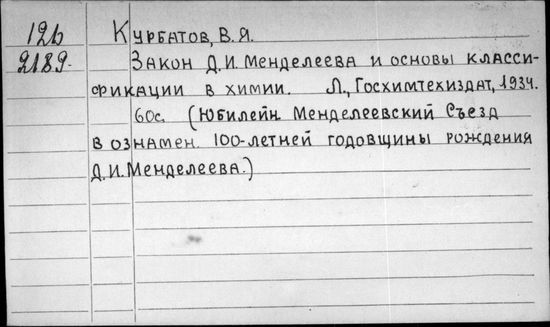 12б Курбатов, В.Я.
2189. Закон Д.И. Менделеева и основы класси-
фикации в химии. Л., Госхимтехиздат, 1934.
60с. (Юбилейн. Менделеевский Съезд
в ознамен. 100-летней годовщины рождения
Д.И. Менделеева.)